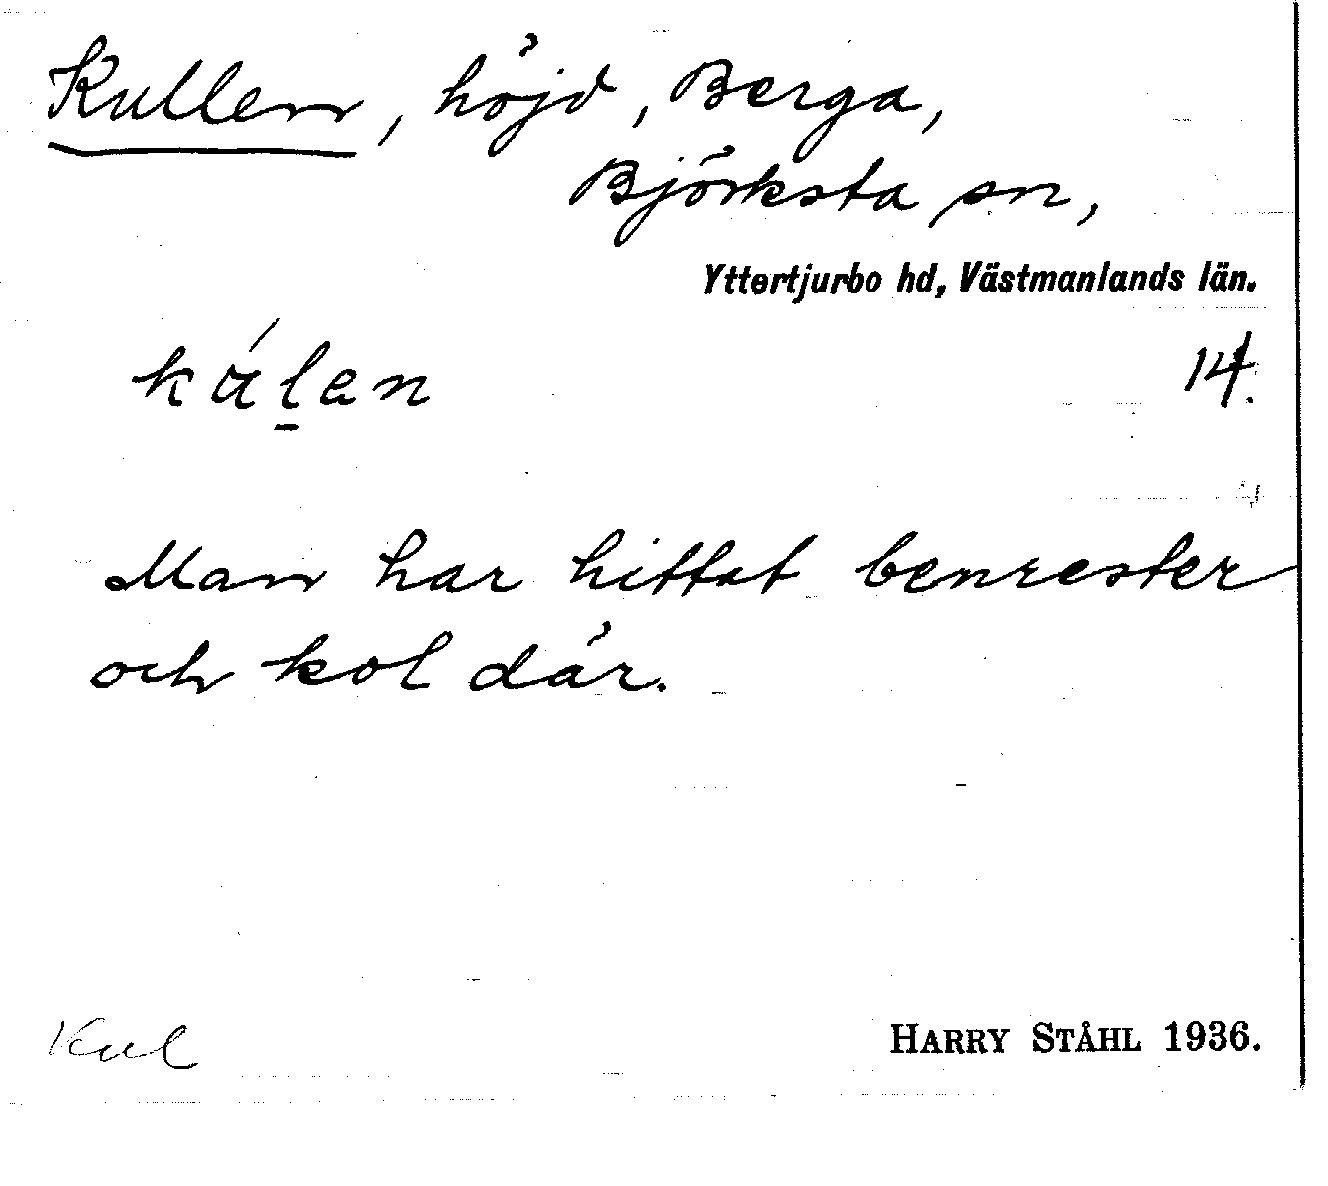 Kullen, höjd, Berga,
Björksta sn,
Yttertjurbo hd, Västmanlands län.
14.
Man har hittat benrester
och kol där.
Kul
HARRY STÅHL 1936.